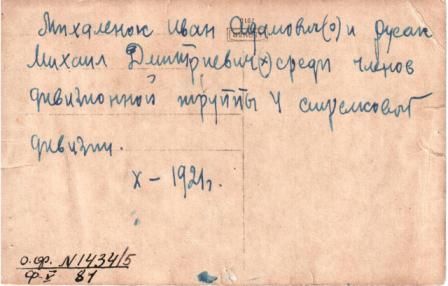 Михаленок Иван Адамович(о) и Русак
Михаил Дмитриевич(х) среди членов
дивизионной труппы 4 стрелковой
дивизии.
X – 1921г.
о.ф. N1434/5
Ф-V 81